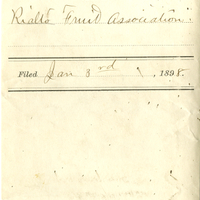 Rialto Fruit Association.
Filed Jan 3rd, 1898.